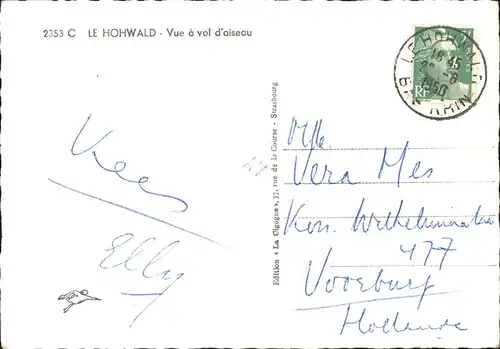 2353 C LE HOHWALD - Vue à vol d'oiseau
LE HOHWALD
16 45
1950
BAS RHIN
RF
Kees
Elly
Edition « La Cigogne », 37, rue de la Course - Strasbourg
Vera Mes
Kon. Wilhelminalaan
477
Voorburg
Hollande